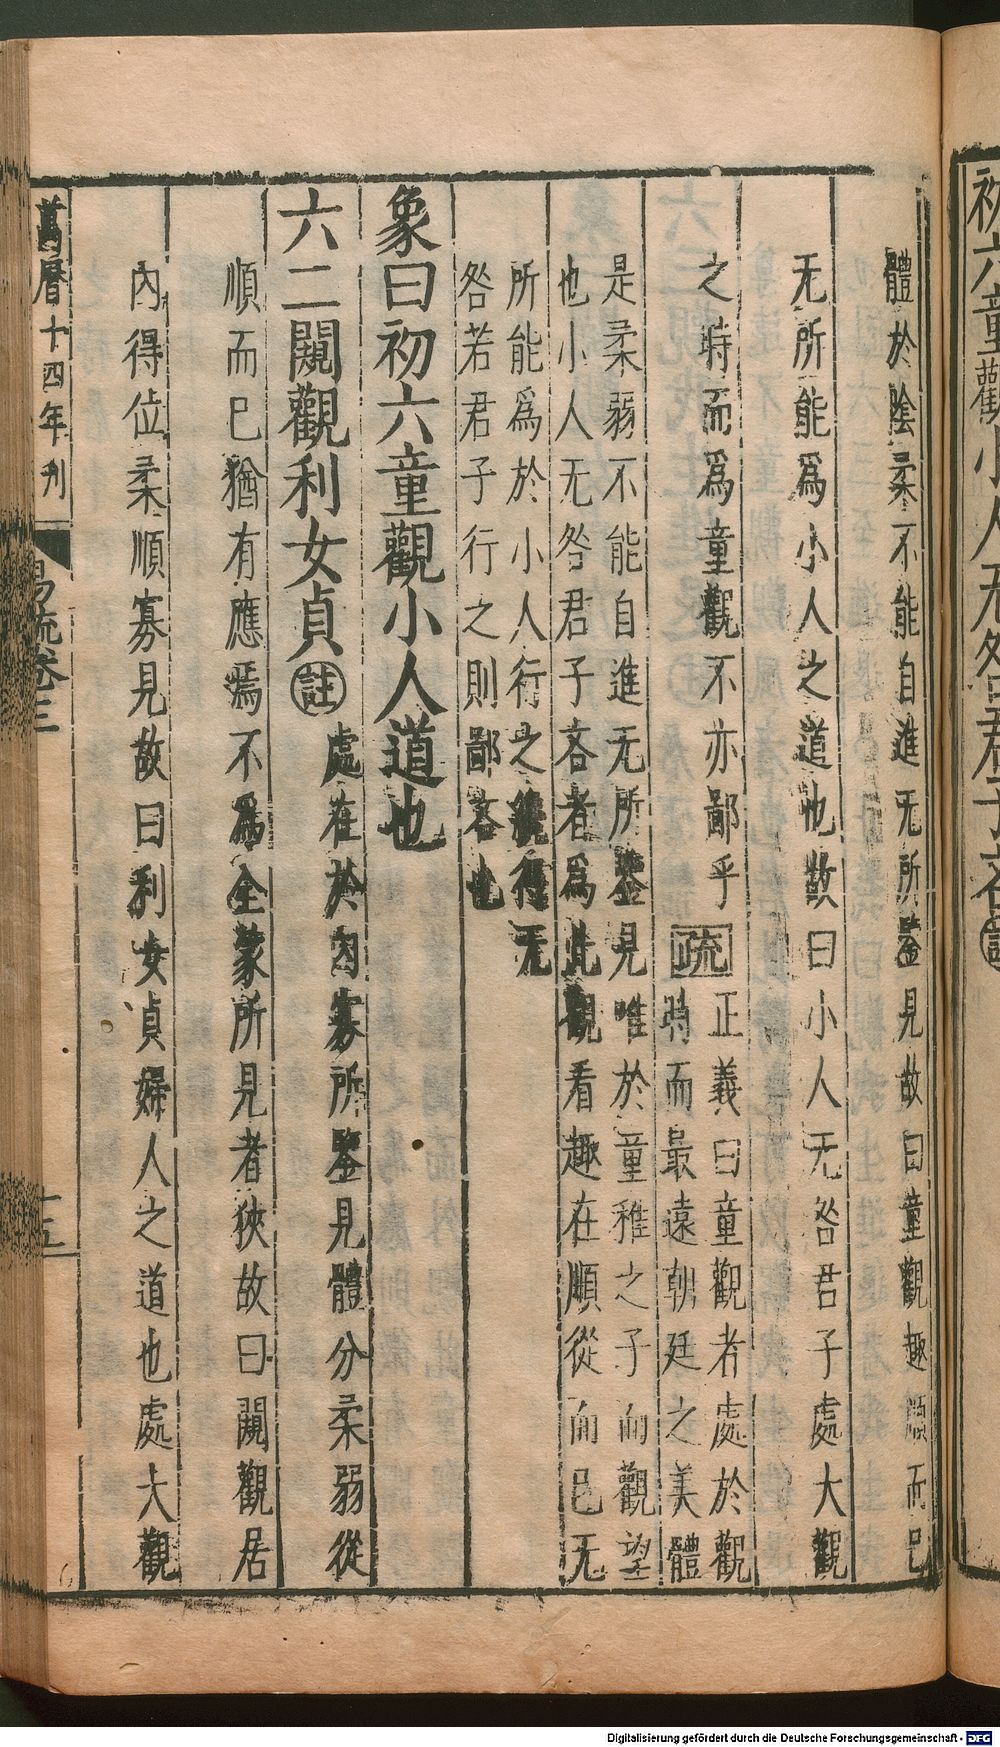 初六童觀小人无咎君子吝註
體於陰柔不能自進无所鑒見故曰童觀趣順而已
无所能為小人之道也故曰小人无咎君子處大觀
之時而為童觀不亦鄙乎疏
正義曰童觀者處於觀
時而最遠朝廷之美體
是柔弱不能自進无所鑒見唯於童稚之子而觀望
也小人无咎君子吝者為此觀看趣在順從而已无
所能為於小人行之纔得无
咎若君子行之則鄙吝也
象曰初六童觀小人道也
六二闚觀利女貞註
處在於內寡所鑒見體分柔弱從
順而已猶有應焉不為全蒙所見者狹故曰闚觀居
內得位柔順寡見故曰利女貞婦人之道也處大觀
萬曆十四年刊
易疏卷三
十五
Digitalisierung gefördert durch die Deutsche Forschungsgemeinschaft - DFG